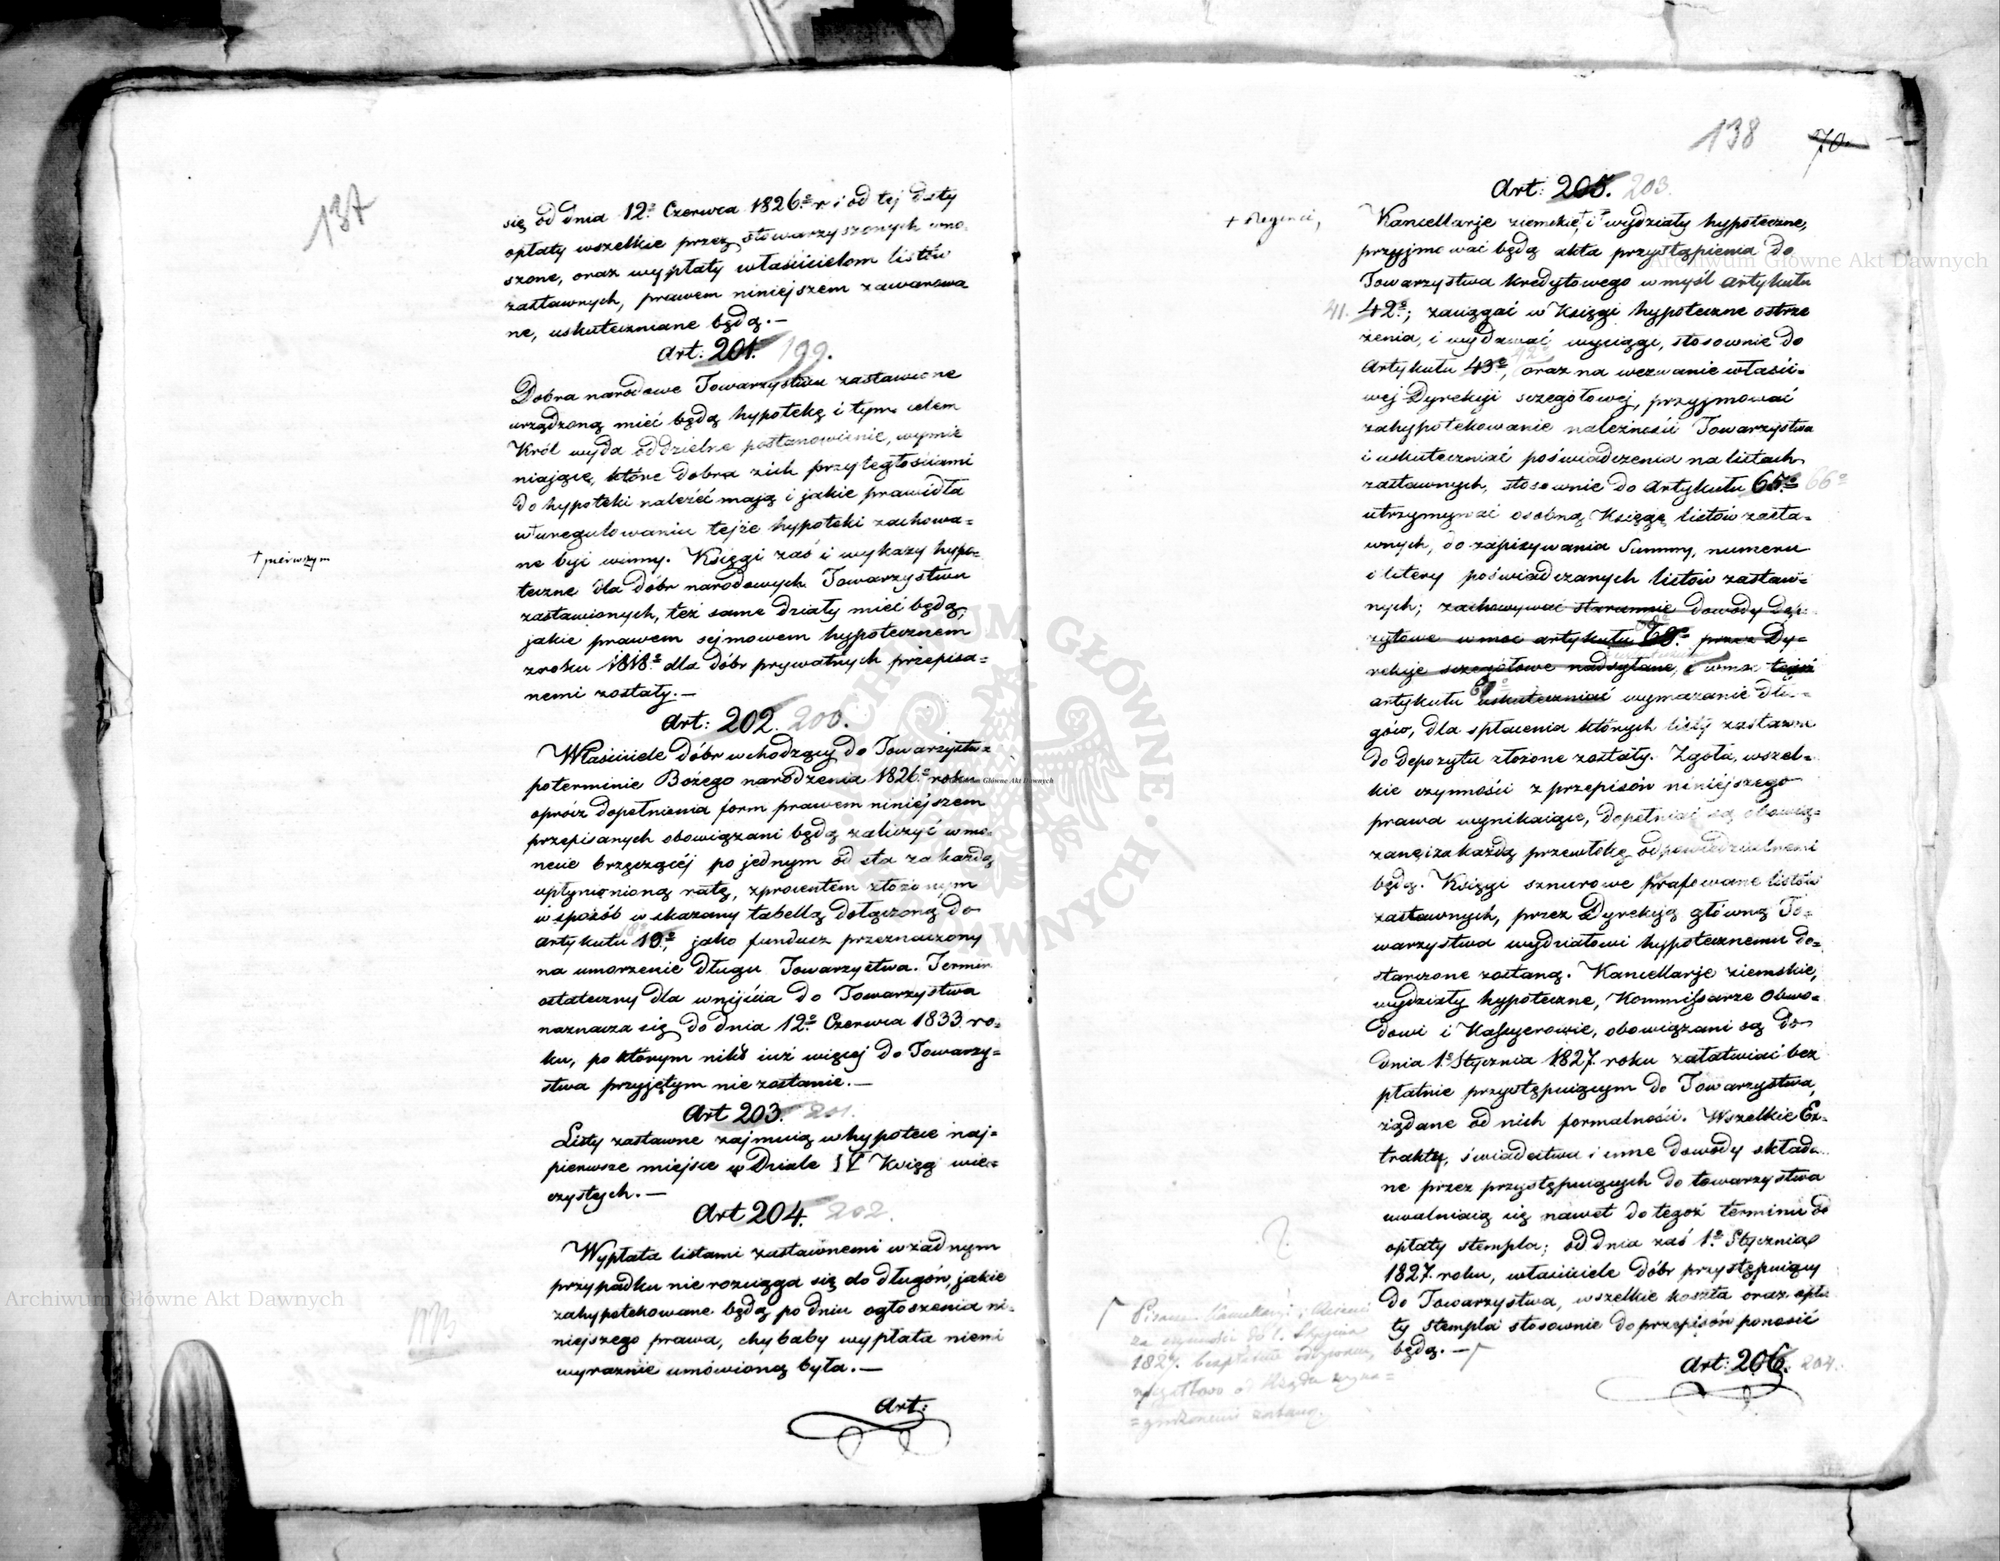 137
się od dnia 12º Czerwca 1826º r. i od tej daty
opłaty wszelkie przez stowarzyszonych wno=
szone, oraz wypłaty właścicielom listów
zastawnych, prawem niniejszem zawarowa
ne, uskuteczniane będą.—
Art: 201. 199.
Dobra narodowe Towarzystwu zastawione
urządzoną mieć będą hypotekę i tym celem
Król wyda oddzielne postanowienie, wymie
niaiące, które dobra z ich przyległościami
do hypoteki należeć mają i jakie prawidła
w uregulowaniu tejże hypoteki zachowa=
ne być winny. Księgi zaś i wykazy hypo=
teczne dla dóbr narodowych Towarzystwu
+ pierwszym
zastawionych, też same działy mieć będą,
jakie prawem sejmowem hypotecznem
z roku 1818º dla dóbr prywatnych przepisa=
nemi zostały.—
Art: 202. 200.
Właściciele dóbr wchodzący do Towarzystwa
po terminie Bożego narodzenia 1826º roku
oprócz dopełnienia form prawem niniejszem
przepisanych obowiązani będą zaliczyć w mo=
necie brzęczącéj po jednym od sta za każdą
upłynionioną ratę, z procentem złożonym
w sposób wskazany tabellą dołączoną do
artykułu 19º, jako fundusz przeznaczony
na umorzenie długu Towarzystwa. Termin
ostateczny dla wnijścia do Towarzystwa
naznacza się do dnia 12º Czerwca 1833 ro=
ku, po którym nikt iuż więcej do Towarzy=
stwa przyjętym nie zostanie.—
Art 203. 201.
Listy zastawne zajmuią w hypotece naj=
pierwsze miejsce w Dziale IV Księgi wie=
czystych.—
Art 204. 202.
Wypłata listami zastawnemi w żadnym
przypadku nie rozciąga się do długów, jakie
zahypotekowane będą po dniu ogłoszenia ni=
niejszego prawa, chybaby wypłata niemi
wyraźnie umówioną była.—
Art:
138 70
Art: 205. 203.
+ Regenci,
Kancellarje ziemskie, i + wydziały hypoteczne,
przyjmować będą akta przystąpienia do
Towarzystwa kredytowego w myśl artykułu
41. 42º; zaciągać w Księgi hypoteczne ostrze
żenia, i wydawać wyciągi, stosownie do
Artykułu 43º, 42º oraz na wezwanie właści=
wej Dyrekcji szczegółowej, przyjmować
zahypotekowanie należności Towarzystwa
i uskuteczniać poświadczenia na listach
zastawnych, stosownie do Artykułu 65º 66º
utrzymywać osobną Księgę listów zasta=
wnych, do zapisywania Summy, numeru
i litery poświadczanych listów zastaw=
nych; zachowywać starannie dowody Dep=
zytowe w moc artykułu przez Dy=
rekcje szczegółowe nadsyłane, i w moc tegoż
artykułu uskuteczniać wymazanie dłu=
gów, dla spłacenia których listy zastawne
do depozytu złożone zostały. Zgoła, wszel=
kie czynności z przepisów niniejszego
prawa wynikaiące, dopełniać są obowią=
zane, i za każdą przewłokę odpowiedzialnemi
będą. Księgi sznurowe parafowane listów
zastawnych, przez Dyrekcją główną To=
warzystwa wydziałowi hypotecznemu do=
starczone zostaną. Kancellarje ziemskie,
wydziały hypoteczne, Kommissarze Obwo=
dowi i Kassyerowie, obowiązani są do
dnia 1º Stycznia 1827 roku załatwiać bez
płatnie przystępuiącym do Towarzystwa,
żądane od nich formalności. Wszelkie Ex=
trakty, świadectwa i inne dowody składa=
ne przez przystępuiących do towarzystwa
uwalniaią się nawet do tegoż terminu od
opłaty stempla; od dnia zaś 1º Stycznia
1827 roku, właściciele dóbr przystępuiący
do Towarzystwa, wszelkie koszta oraz opła
ty stempla stosownie do przepisów ponosić
będą.—
1827.
Art: 206. 204.
Archiwum Główne Akt Dawnych
Archiwum Główne Akt Dawnych
Archiwum Główne Akt Dawnych
ARCHIWUM GŁÓWNE AKT DAWNYCH